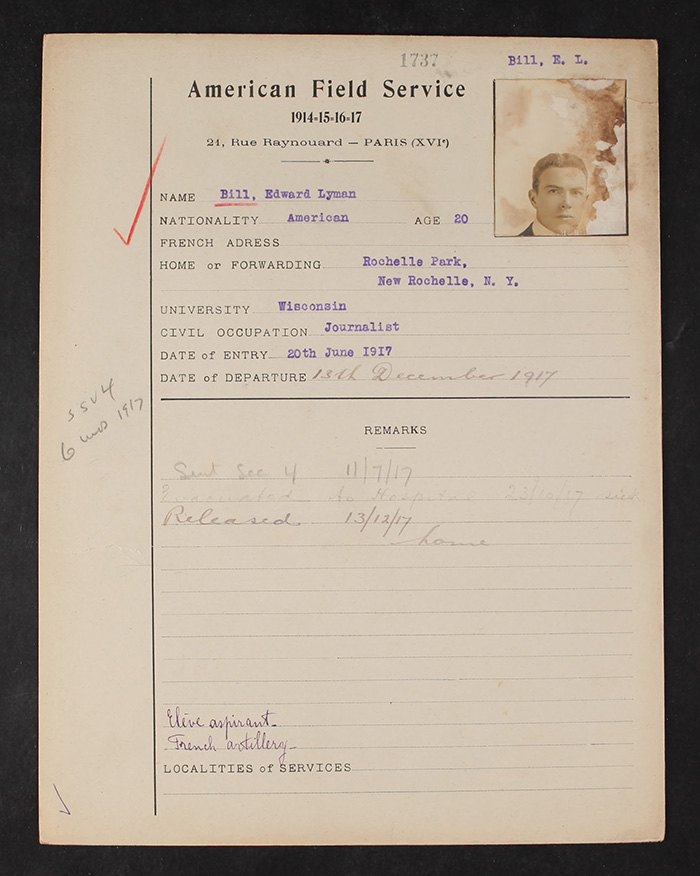 1737
Bill, E. L.
American Field Service
1914-15-16-17
21, Rue Raynouard — PARIS (XVIe)
NAME Bill, Edward Lyman
NATIONALITY American AGE 20
FRENCH ADRESS
HOME or FORWARDING Rochelle Park,
New Rochelle, N. Y.
UNIVERSITY Wisconsin
CIVIL OCCUPATION Journalist
DATE of ENTRY 20th June 1917
DATE of DEPARTURE 13th December 1917
SSU 4
6 mos 1917
REMARKS
Sent Sec 4 11/7/17
Evacuated to Hospital 23/10/17 sick
Released 13/12/17
home
Elève aspirant
French artillery
LOCALITIES of SERVICES